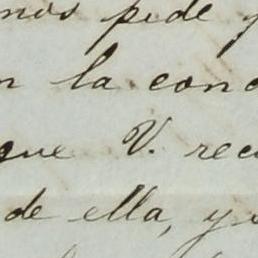 nos pide
n la conc
que V. rec
de ella, y